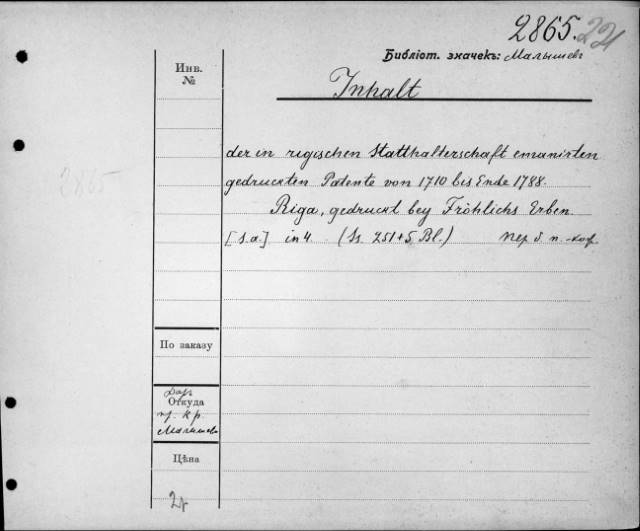 2865. 221
Библіот. значекъ: Малышевъ
Инв.
№
Inhalt
der in rigischen Statthalterschaft emanirten
2865
gedruckten Patente von 1710 bis Ende 1788.
Riga, gedruckt bey Fröhlichs Erben.
[s.a.] in 4. (Ss. 251+5 Bl.) пер. б. п.-кор.
По заказу
Даръ
Откуда
пр. кр.
Малышева
Цѣна
2р